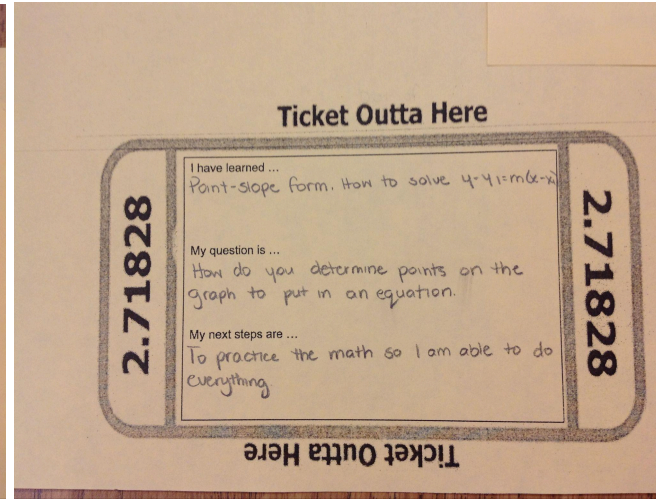 Ticket Outta Here
2.71828
I have learned ...
Point-slope form. How to solve y-y1=m(x-x1)
My question is ...
How do you determine points on the
graph to put in an equation.
My next steps are ...
To practice the math so I am able to do
everything.
2.71828
Ticket Outta Here